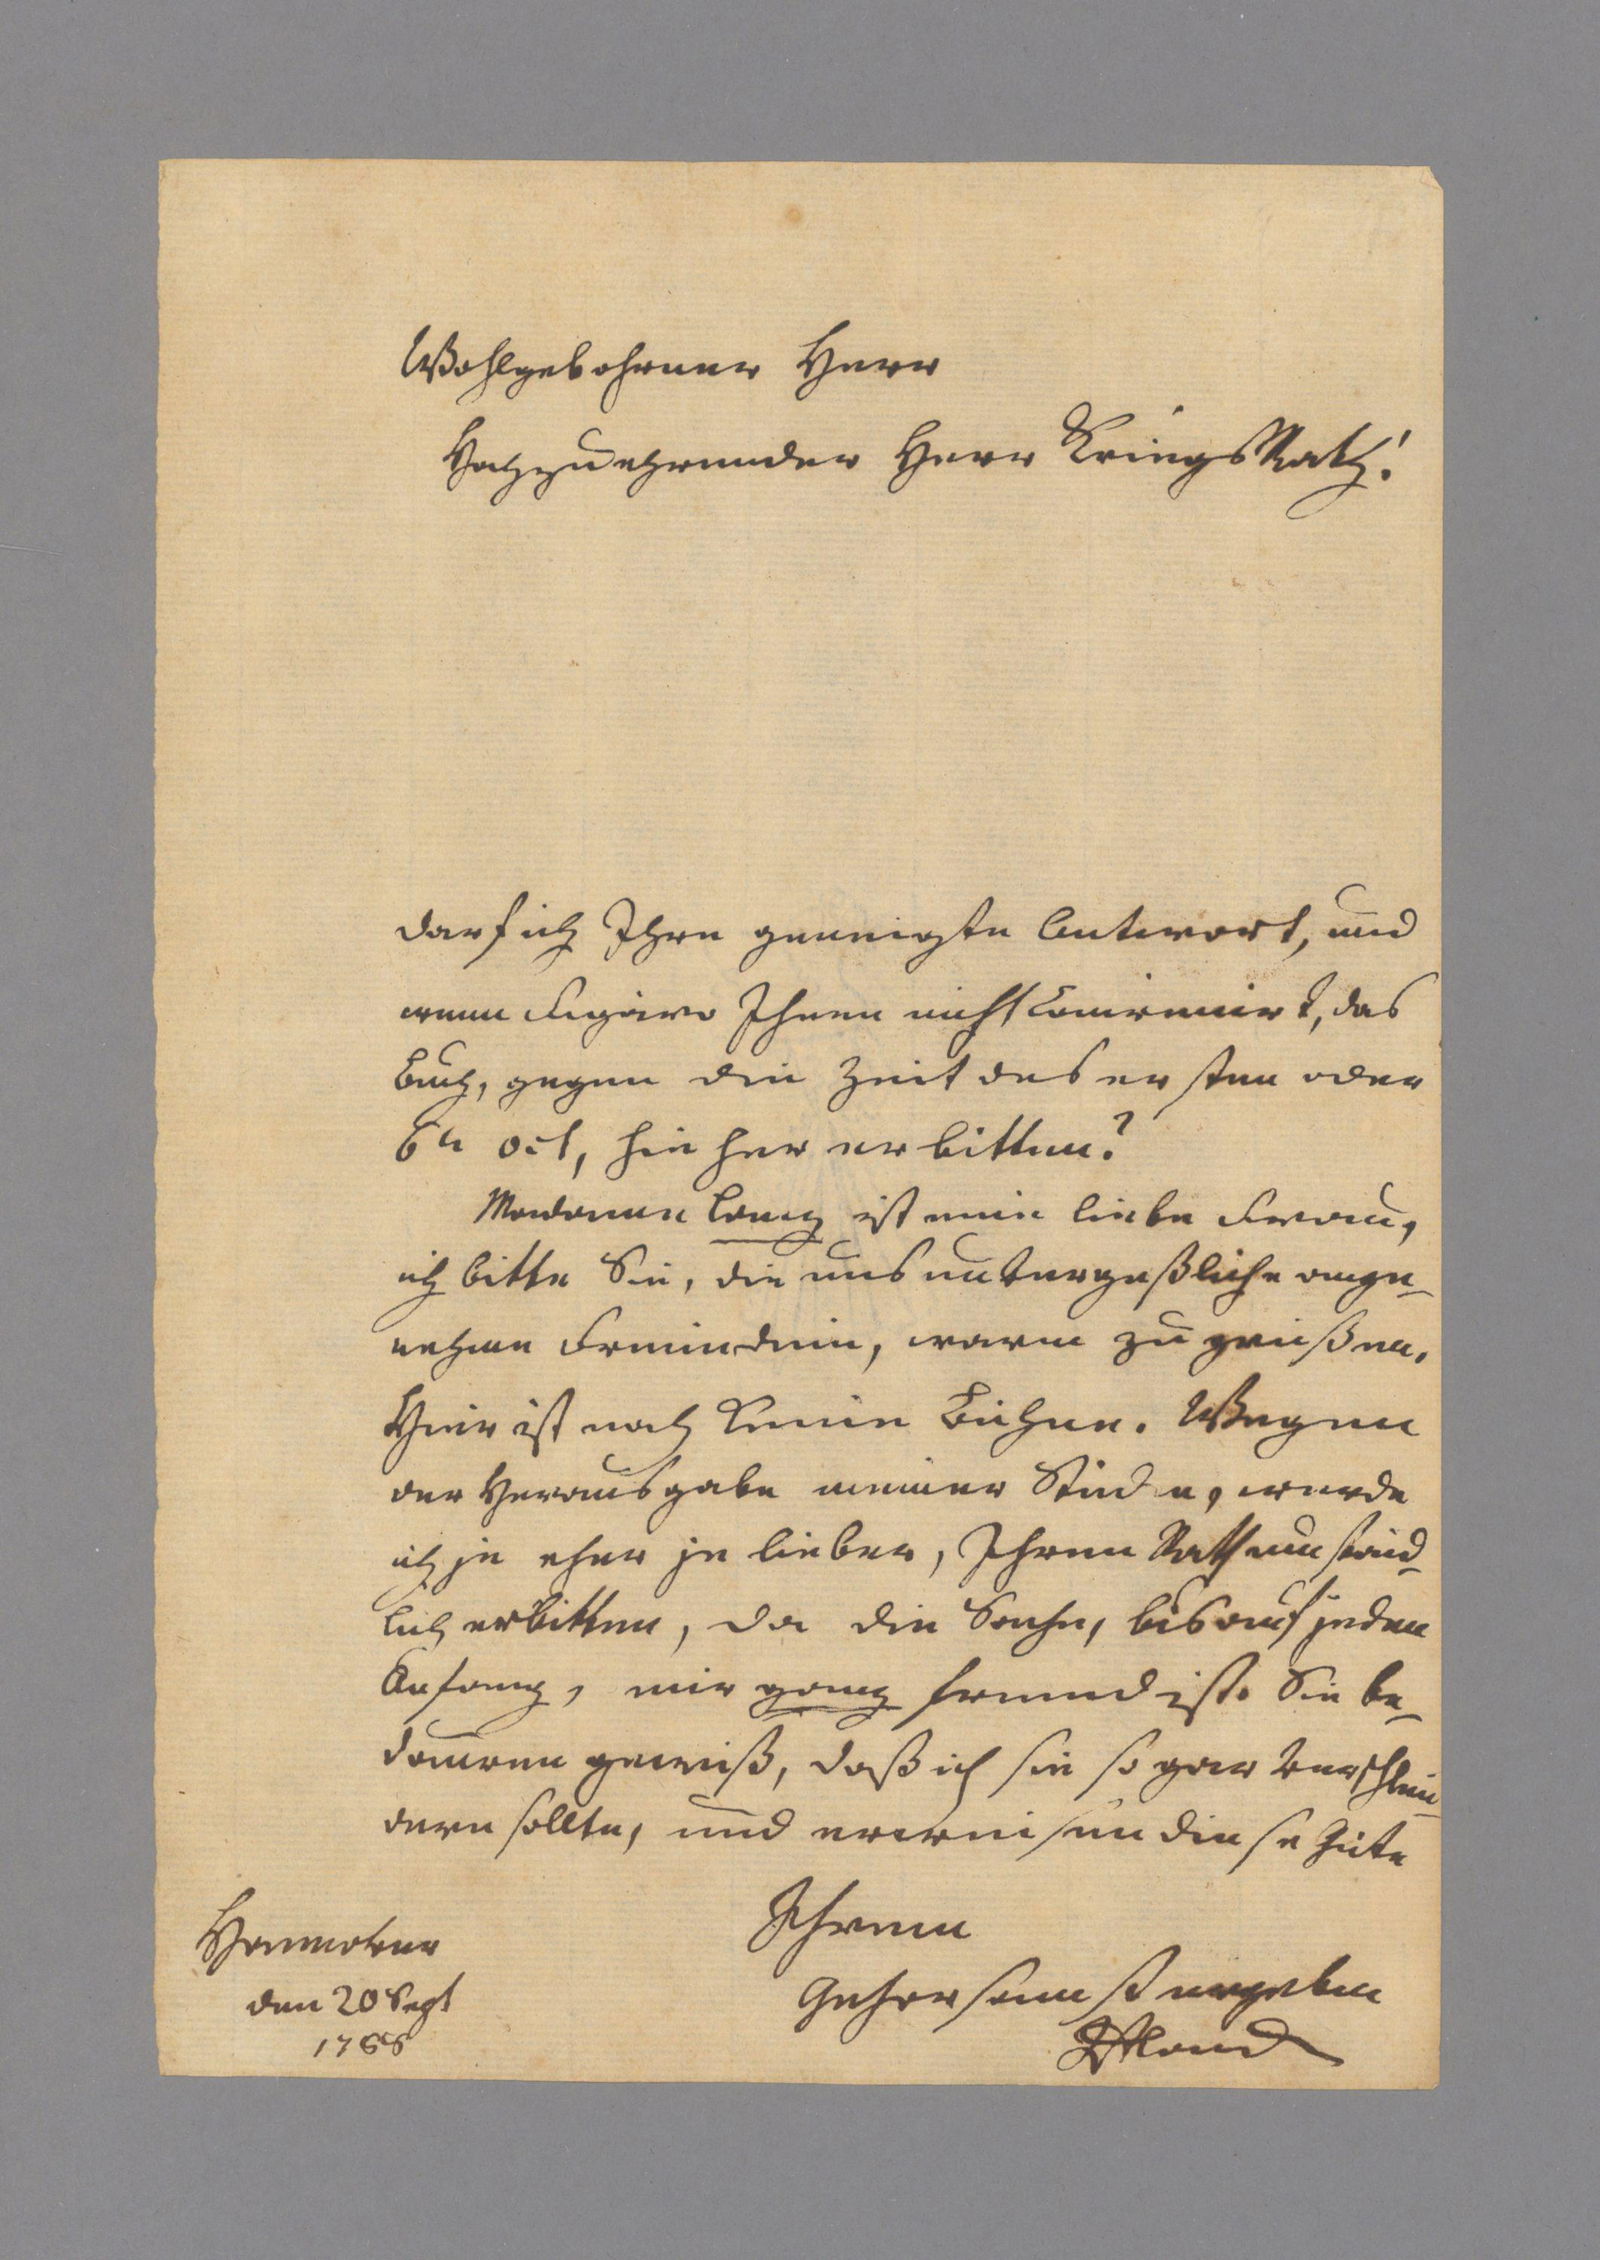 Wohlgebohrner Herr
Hochzuehrender Herr KriegsRath!
darf ich Ihre geneigte Antwort, und
wenn Figaro Ihnen nicht Convenirt, das
Buch, gegen die Zeit des ersten oder
6n oct, hie her erbitten?
Madame Lanz ist eine liebe Frau,
ich bitte Sie, die uns unvergeßliche ange-
nehme Freundin, warm zu grüßen.
Hier ist noch keine Bühne. Wegen
der Herausgabe meiner Stücke, werde
ich je eher je lieber, Ihren Rath umständ-
lich erbitten, da die Sache, bis auf jeden
Anfang, mir ganz fremd ist. Sie be-
dauren gewiß, daß ich sie so gar verschleu-
dern sollte, und erweisen diese Güte
Ihrem
Gehorsamst ergeben
Iffland
Hannover
den 20 Sept